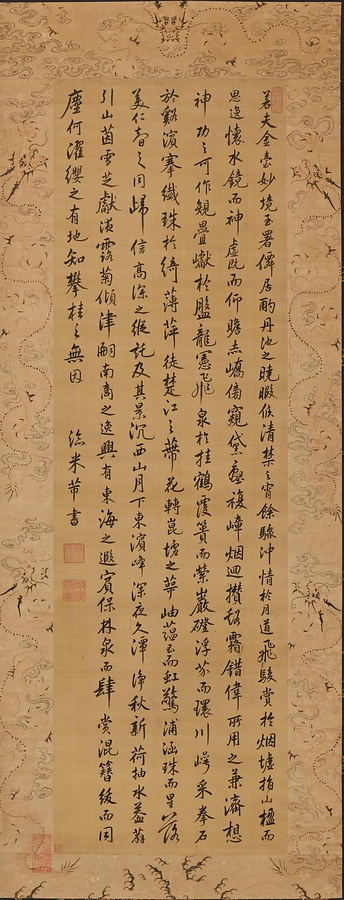 若夫金臺妙境玉署僊居酌丹池之曉暇候清禁之宵餘驂沖情於月道飛駿賞於烟墟指山楹而
思逸懷水鏡而神虛既而仰瞻赤嶠傍窺黛壑複嶂烟迴攢谿霜錯偉所用之兼濟想
神功之可作覿疊巘於盤龍憲飛泉於挂鶴覆簣而縈巖磴浮芥而環川崿采拳石
於谿濱搴纖珠於綺薄萍徙楚江之蔕花轉崑墟之萼岫蘊玉而虹驚浦涵珠而星落
美仁智之同歸信高深之縱託及其景沉西山月下東濱啼深夜久潭淨秋新荷抽水蓋薜
引山茵雲芝獻液露菊傾津嗣南商之逸興有東海之遐賓保林泉而肆賞混簪紱而同
塵何濯纓之有地知攀桂之無因
臨米芾書